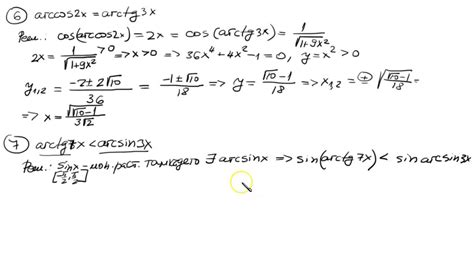 ⑥ arccos2x = arctg3x
Реш.: cos(arccos2x) = 2x = cos(arctg3x) = 1/√(1+9x²)
2x = 1/√(1+9x²) >0 => x>0 => 36x⁴+4x²-1=0, y=x²>0
y₁,₂ = (-2±2√10)/36 = (-1±√10)/18 => y = (√10-1)/18 => x₁,₂ = ⊕√((√10-1)/18) =
=> x = √(√10-1)/(3√2)
⑦ arctg7x < arcsin3x
Реш.: sinx - мон. раст. ∃ arcsinx => sin(arctg7x) < sin arcsin3x
[-π/2, π/2]